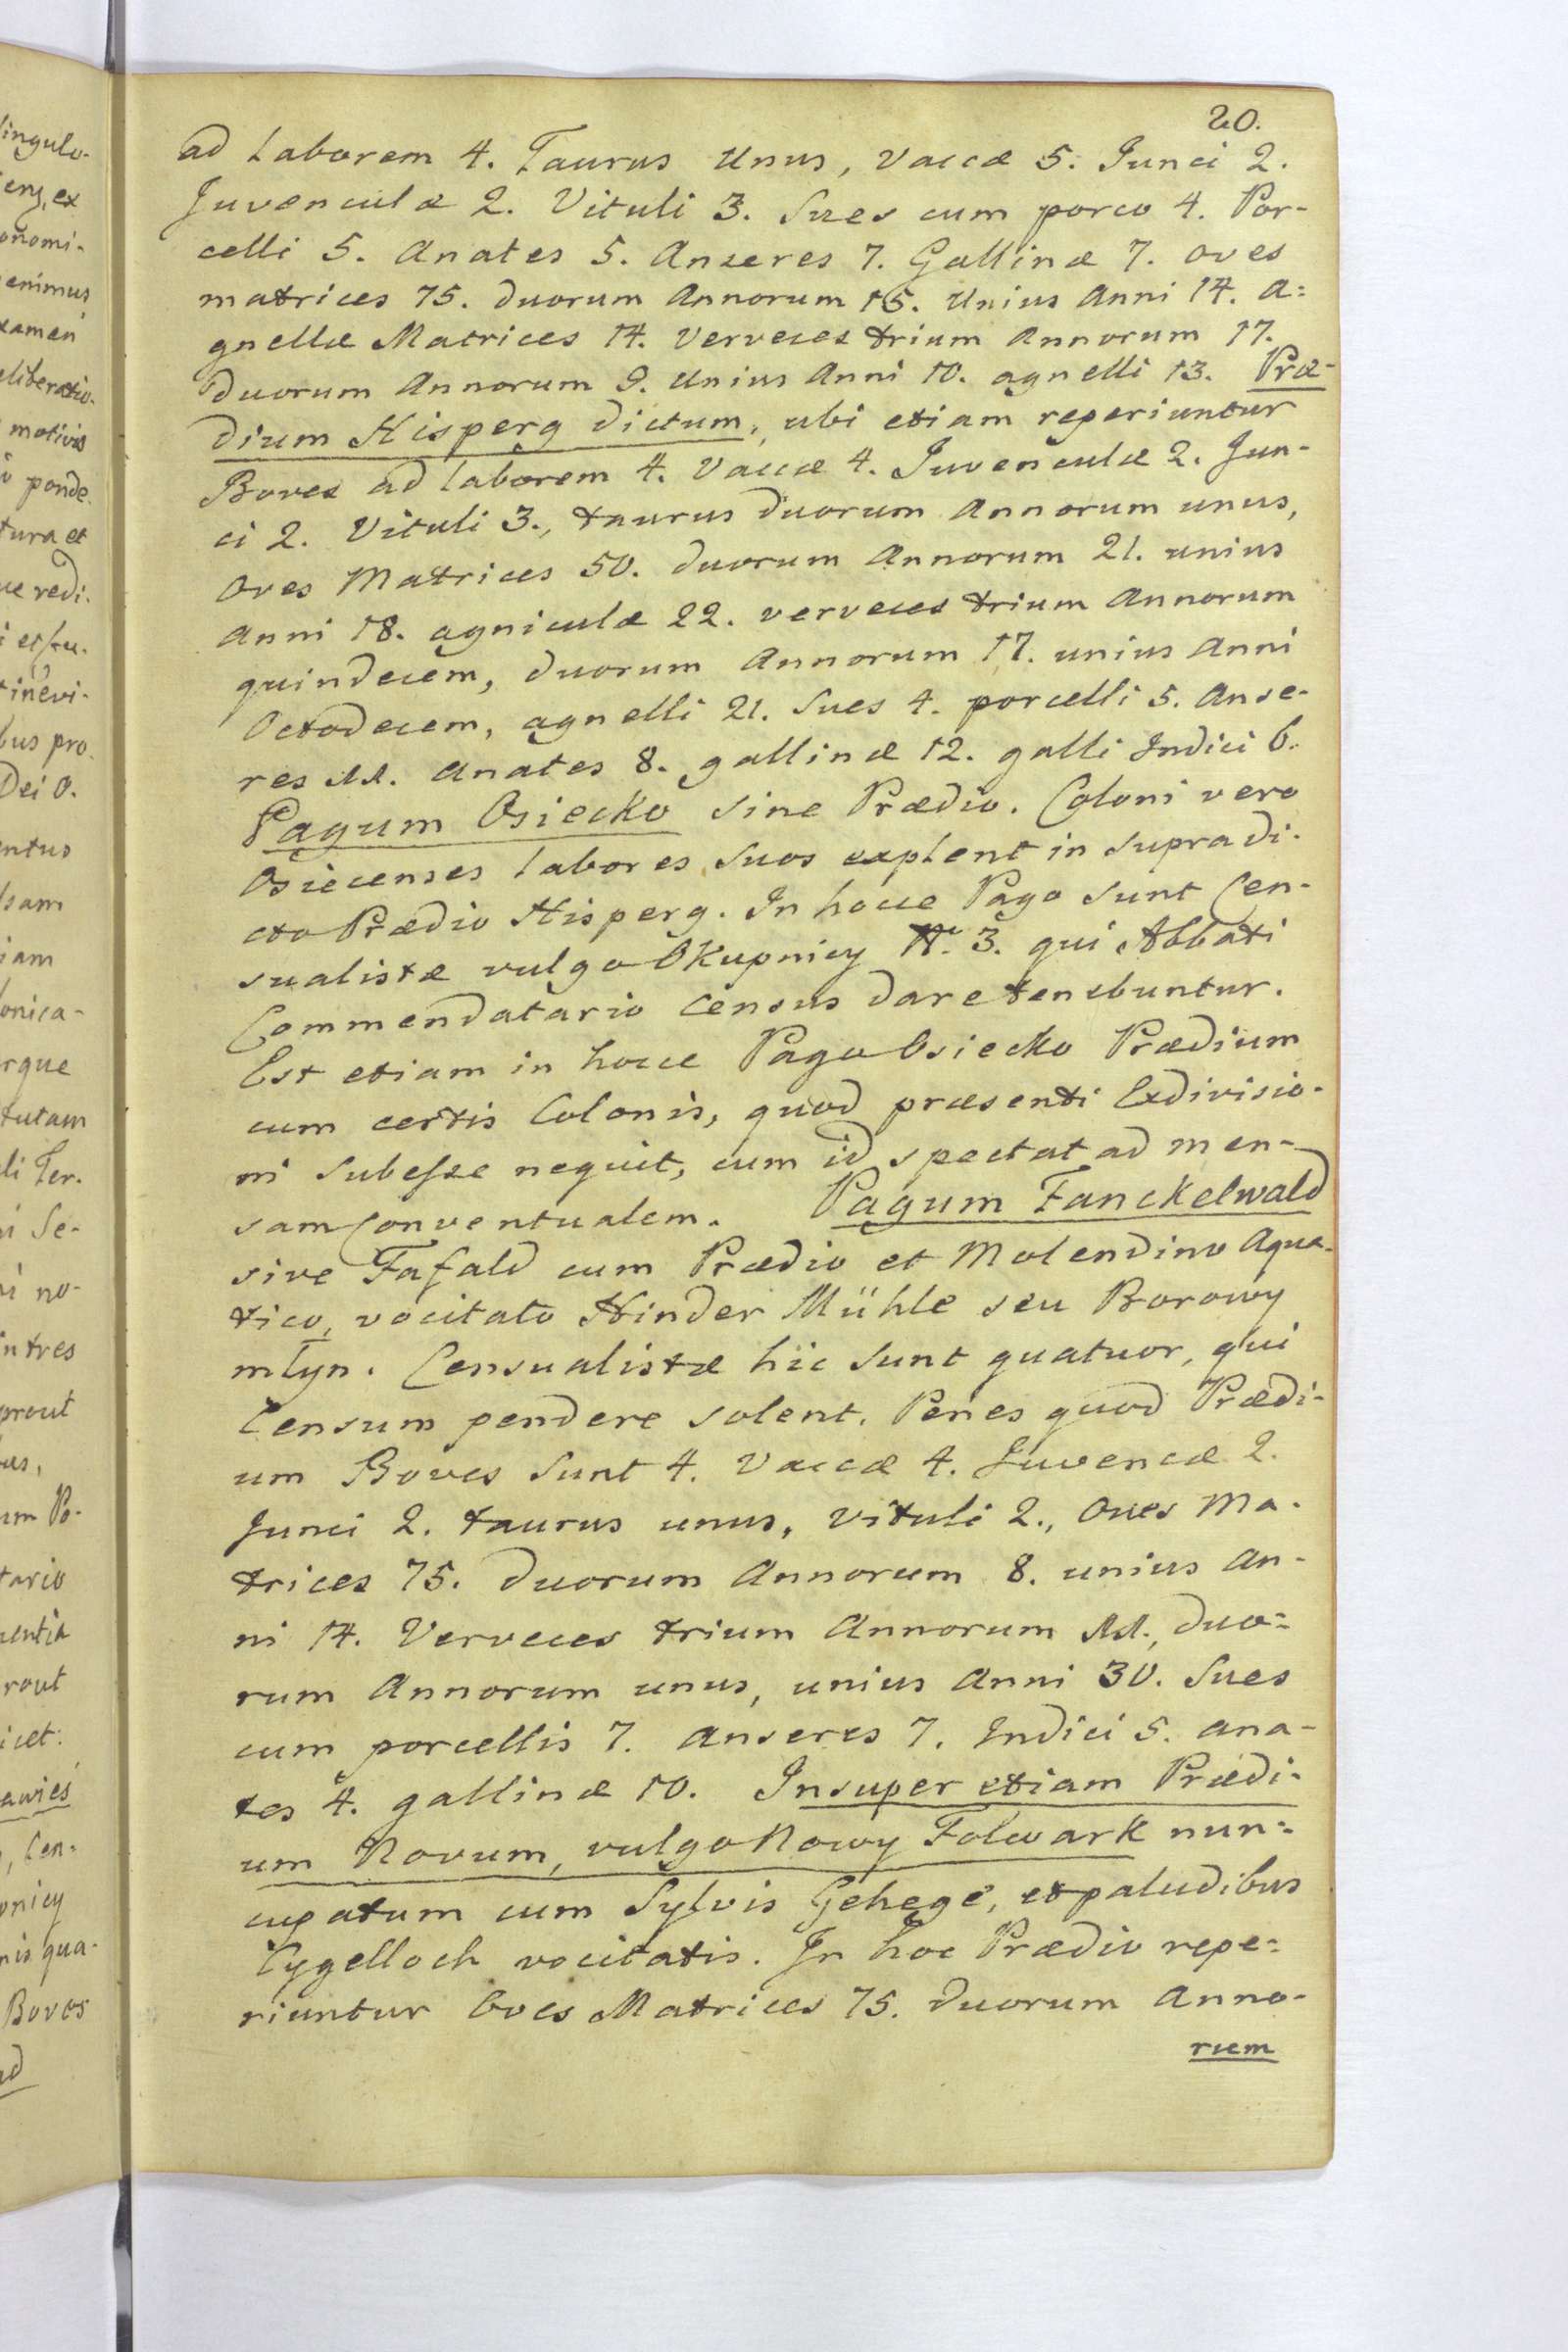 20.
ad Laborem 4. Taurus Unus, Vaccæ 5. Junci 2.
Juvenculæ 2. Vituli 3. Sues cum porco 4. Por-
celli 5. Anates 5. Anseres 7. Gallinæ 7. oves
matrices 75. duorum Annorum 15. Unius Anni 14. A=
gnellæ Matrices 14. Verveces trium Annorum 17.
duorum Annorum 9. Unius Anni 10. agnelli 13. Præ-
dium Hisperg dictum, ubi etiam reperiuntur
Boves ad laborem 4. Vaccæ 4. Juvenculæ 2. Jun-
ci 2. Vituli 3., taurus duorum Annorum unus,
Oves Matrices 50. duorum Annorum 21. unius
Anni 18. agniculæ 22. verveces trium Annorum
quindecem, duorum Annorum 17. unius Anni
Octodecem, agnelli 21. Sues 4. porcelli 5. Anse-
res 11. Anates 8. gallinæ 12. galli Indici 6.
Pagum Osiecko sine Prædio. Coloni vero
Osiecenses labores suos explent in supra di-
cto Prædio Hisperg. In hocce Pago sunt Cen-
sualistæ vulgo Okupnicy N. 3. qui Abbati
Commendatario Census dare tenebuntur.
Est etiam in hocce Pago Osiecko Prædium
cum certis Colonis, quod præsenti Exdivisio-
ni subesse nequit, cum id spectat ad men-
sam Conventualem. Pagum Fanckelwald
sive Fafald cum Prædio et Molendino Aqua-
tico, vocitato Hinder Mühle seu Borowy
mlyn. Censualistæ hic sunt quatuor, qui
Censum pendere solent. Penes quod Prædi-
um Boves sunt 4. Vaccæ 4. Juvencæ 2.
Junci 2. taurus unus, vituli 2., Oves Ma-
trices 75. duorum Annorum 8. unius An-
ni 14. Verveces trium Annorum 11., duo=
rum Annorum unus, unius Anni 30. Sues
cum porcellis 7. Anseres 7. Indici 5. Ana-
tes 4. gallinæ 10. Insuper etiam Prædi-
um Novum, vulgo Nowy Folwark nun=
cupatum cum Sylvis Gehege, et paludibus
Cygelloch vocitatis. In hoc Prædio repe=
riuntur Oves Matrices 75. duorum Anno-
rum